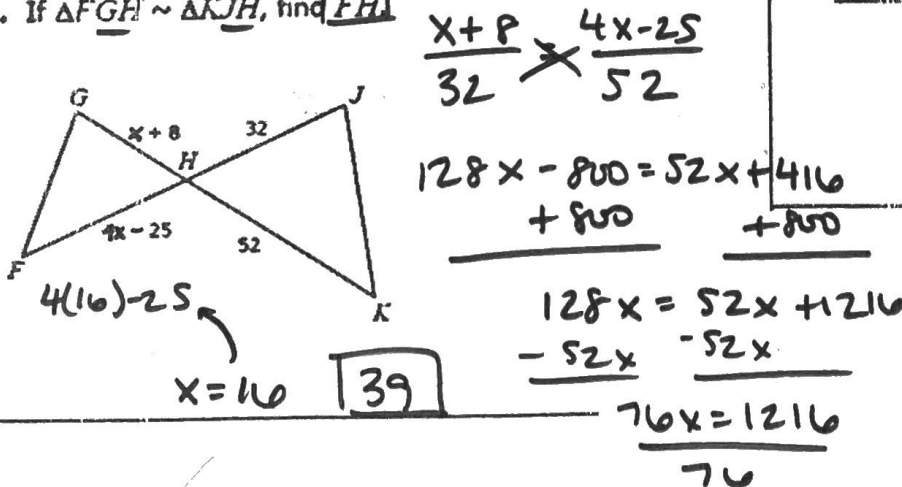 . If ΔFGH ~ ΔKJH, find FH.
x+8 4x-25
32 = 52
G
J
x + 8
32
H
4x - 25
52
F
K
128x - 800 = 52x + 416
+ 800 + 800
128x = 52x + 1216
- 52x - 52x
76x = 1216
76
4(16)-25
x = 16
39